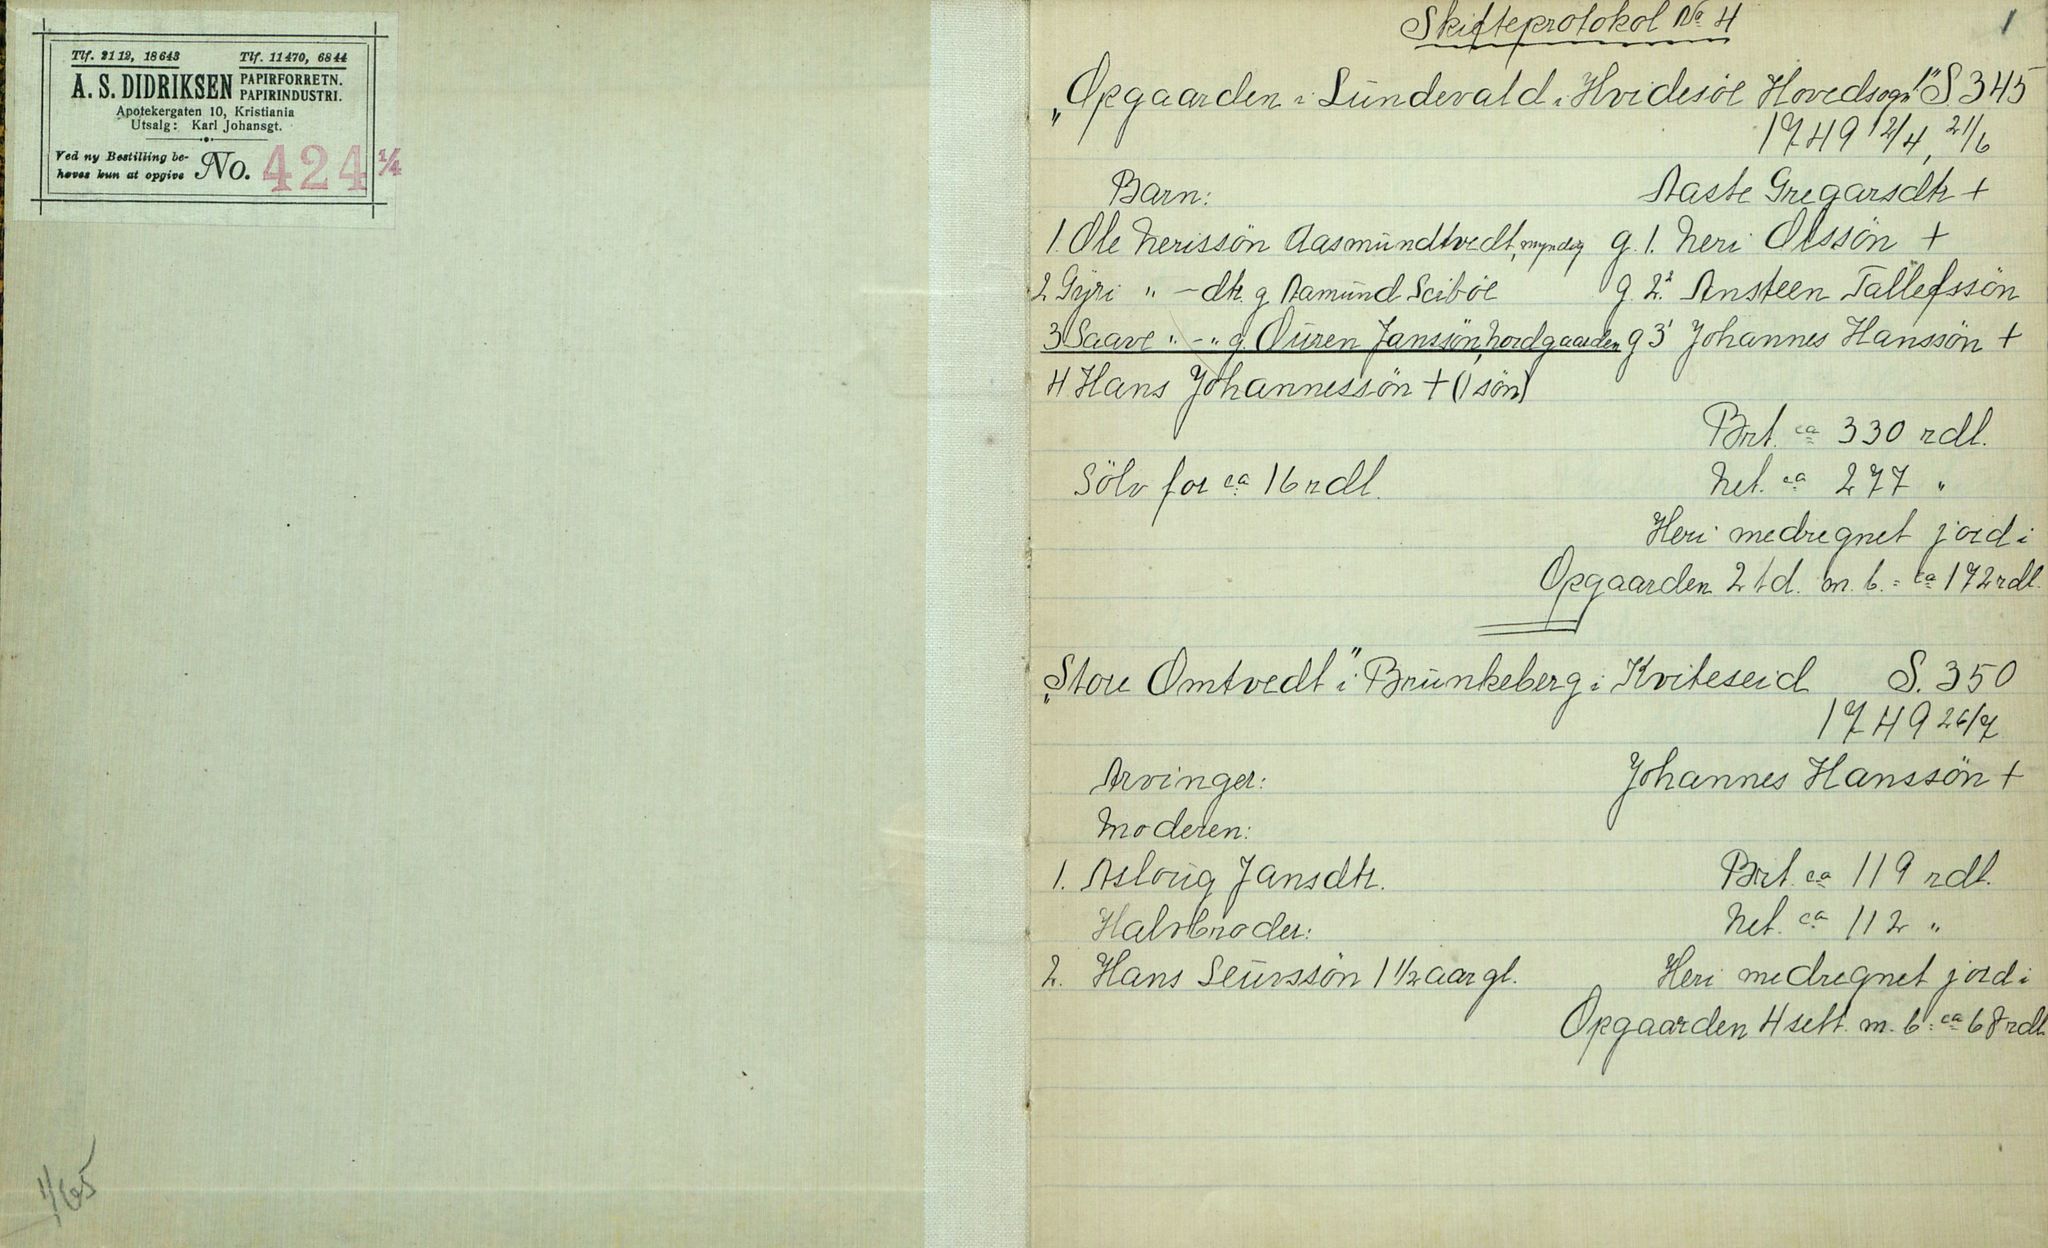 Tlf. 2112, 18643 Tlf. 11470, 6844
A. S. DIDRIKSEN PAPIRFORRETN. PAPIRINDUSTRI.
Apotekergaten 10, Kristiania
Utsalg: Karl Johansgt.
Ved ny Bestilling be-
høves kun at opgive No. 424 1/4
1/65
Skifteprotokol No 4
1
"Opgaarden i Sundevald i Hvidesöe Hovedsogn" S. 345
1749 12/4, 21/6
Barn: Aaste Gregarsdtr +
1. Ole Nerissön Aasmundtvedt, myndig g. 1. Neri Olssön +
2 Gyri " - dtr. g. Aamund Sciböe g. 2º Ansteen Tallefssön
3 Saave " - " g. Ouren Janssön, Nordgaarden g 3' Johannes Hanssön +
4. Hans Johannessön + (1 sön)
Brt. ca 330 rdl.
Sölv for ca 16 rdl. Net. ca 277 "
Heri medregnet jord i
Opgaarden 2 td. m. b. = ca 172 rdl.
"Store Omtvedt i" Brunkeberg i Kviteseid S. 350
1749 26/7
Arvinger: Johannes Hanssön +
Moderen:
1. Asloug Jansdtr. Brt. ca 119 rdl.
Halvbroder: Net. ca 112 "
2. Hans Seurssön 1 1/2 aar gl. Heri medregnet jord i
Opgaarden 4 sett. m. b = ca 68 rdl